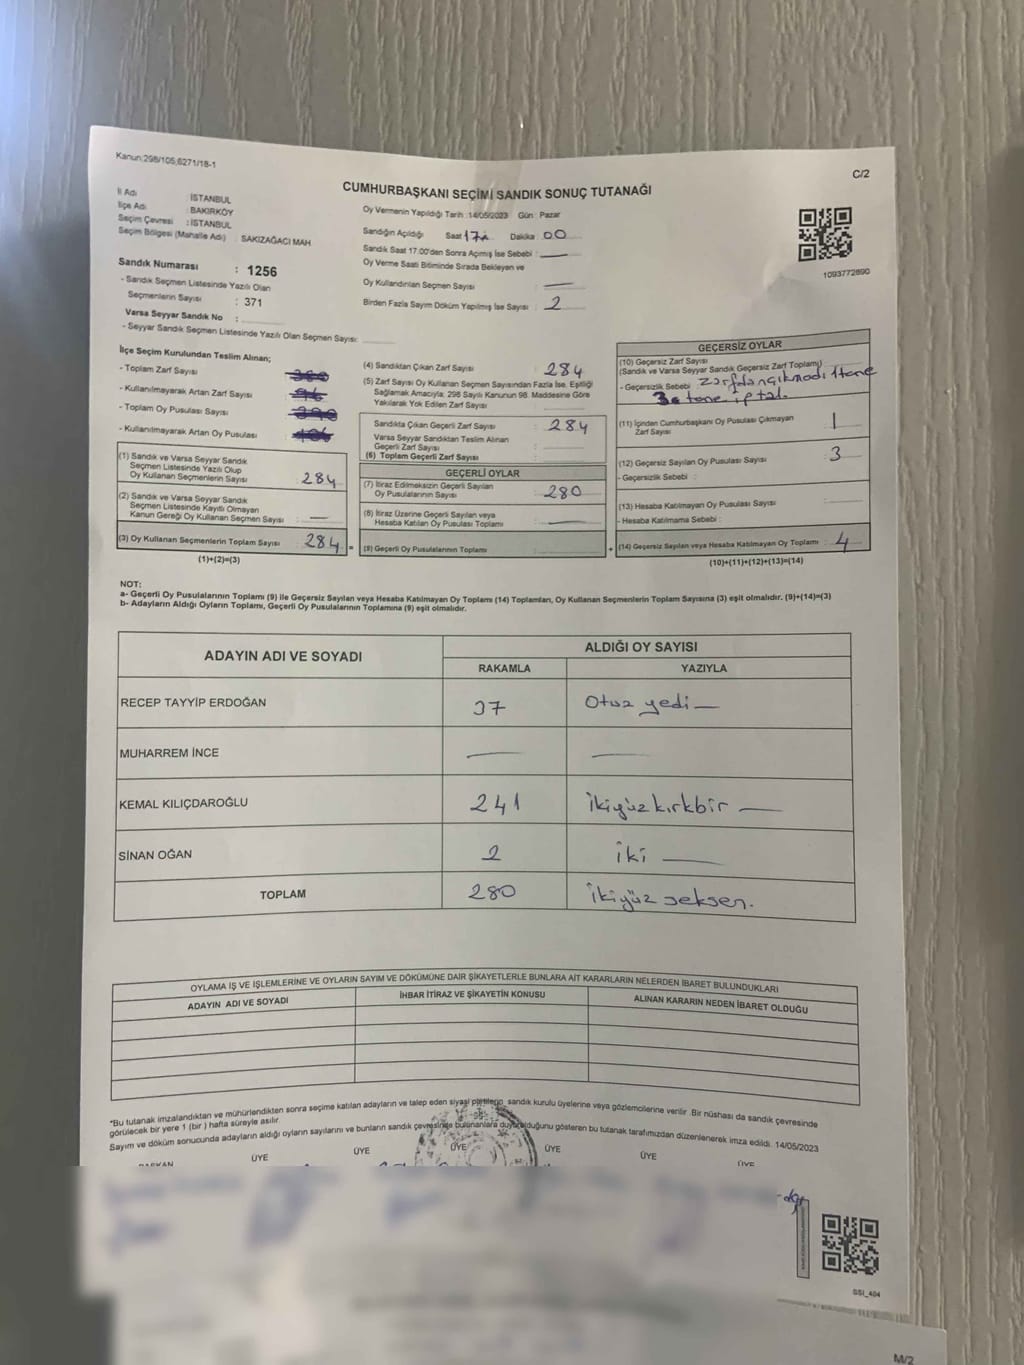 Kanun:298/105,6271/18-1
C/2
CUMHURBAŞKANI SEÇİMİ SANDIK SONUÇ TUTANAĞI
İl Adı : İSTANBUL
İlçe Adı : BAKIRKÖY
Seçim Çevresi : İSTANBUL
Seçim Bölgesi (Mahalle Adı) : SAKIZAĞACI MAH
Sandık Numarası : 1256
- Sandık Seçmen Listesinde Yazılı Olan
Seçmenlerin Sayısı : 371
Varsa Seyyar Sandık No :
- Seyyar Sandık Seçmen Listesinde Yazılı Olan Seçmen Sayısı:
Oy Vermenin Yapıldığı Tarih :14/05/2023 Gün : Pazar
Sandığın Açıldığı Saat 17 Dakika 00
Sandık Saat 17.00'den Sonra Açımış İse Sebebi :
Oy Verme Saati Bitiminde Sırada Bekleyen ve
Oy Kullandırılan Seçmen Sayısı :
Birden Fazla Sayım Döküm Yapılmış İse Sayısı : 2
1093772690
İlçe Seçim Kurulundan Teslim Alınan;
- Toplam Zarf Sayısı
- Kullanılmayarak Artan Zarf Sayısı :
- Toplam Oy Pusulası Sayısı :
- Kullanılmayarak Artan Oy Pusulası :
(1) Sandık ve Varsa Seyyar Sandık
Seçmen Listesinde Yazılı Olup
Oy Kullanan Seçmenlerin Sayısı : 284
(2) Sandık ve Varsa Seyyar Sandık
Seçmen Listesinde Kayıtlı Olmayan
Kanun Gereği Oy Kullanan Seçmen Sayısı :
(3) Oy Kullanan Seçmenlerin Toplam Sayısı : 284 =
(1)+(2)=(3)
(4) Sandıktan Çıkan Zarf Sayısı : 284
(5) Zarf Sayısı Oy Kullanan Seçmen Sayısından Fazla İse, Eşitliği
Sağlamak Amacıyla, 298 Sayılı Kanunun 98. Maddesine Göre
Yakılarak Yok Edilen Zarf Sayısı :
Sandıkta Çıkan Geçerli Zarf Sayısı : 284
Varsa Seyyar Sandıktan Teslim Alınan
Geçerli Zarf Sayısı :
(6) Toplam Geçerli Zarf Sayısı :
GEÇERLİ OYLAR
(7) İtiraz Edilmeksizin Geçerli Sayılan
Oy Pusulalarının Sayısı : 280
(8) İtiraz Üzerine Geçerli Sayılan veya
Hesaba Katılan Oy Pusulası Toplamı :
(9) Geçerli Oy Pusulalarının Toplamı : +
GEÇERSİZ OYLAR
(10) Geçersiz Zarf Sayısı
(Sandık ve Varsa Seyyar Sandık Geçersiz Zarf Toplamı)
- Geçersizlik Sebebi : Zarfdançıkmadı 1tane
3 tane iptal.
(11) İçinden Cumhurbaşkanı Oy Pusulası Çıkmayan
Zarf Sayısı : 1
(12) Geçersiz Sayılan Oy Pusulası Sayısı : 3
- Geçersizlik Sebebi :
(13) Hesaba Katılmayan Oy Pusulası Sayısı :
- Hesaba Katılmama Sebebi :
(14) Geçersiz Sayılan veya Hesaba Katılmayan Oy Toplamı : 4
(10)+(11)+(12)+(13)=(14)
NOT:
a- Geçerli Oy Pusulalarının Toplamı (9) ile Geçersiz Sayılan veya Hesaba Katılmayan Oy Toplamı (14) Toplamları, Oy Kullanan Seçmenlerin Toplam Sayısına (3) eşit olmalıdır. (9)+(14)=(3)
b- Adayların Aldığı Oyların Toplamı, Geçerli Oy Pusulalarının Toplamına (9) eşit olmalıdır.
ADAYIN ADI VE SOYADI
ALDIĞI OY SAYISI
RAKAMLA YAZIYLA
RECEP TAYYİP ERDOĞAN 37 Otuz yedi
MUHARREM İNCE
KEMAL KILIÇDAROĞLU 241 İkiyüzkırkbir
SİNAN OĞAN 2 İki
TOPLAM 280 İkiyüz seksen.
OYLAMA İŞ VE İŞLEMLERİNE VE OYLARIN SAYIM VE DÖKÜMÜNE DAİR ŞİKAYETLERLE BUNLARA AİT KARARLARIN NELERDEN İBARET BULUNDUKLARI
ADAYIN ADI VE SOYADI İHBAR İTİRAZ VE ŞİKAYETİN KONUSU ALINAN KARARIN NEDEN İBARET OLDUĞU
*Bu tutanak imzalandıktan ve mühürlendikten sonra seçime katılan adayların ve talep eden siyasi partilerin, sandık kurulu üyelerine veya gözlemcilerine verilir .Bir nüshası da sandık çevresinde
görülecek bir yere 1 (bir ) hafta süreyle asılır.
Sayım ve döküm sonucunda adayların aldığı oyların sayılarını ve bunların sandık çevresinde bulunanlara duyurulduğunu gösteren bu tutanak tarafımızdan düzenlenerek imza edildi. 14/05/2023
BAŞKAN ÜYE ÜYE ÜYE ÜYE ÜYE ÜYE
SSI_404
M/2